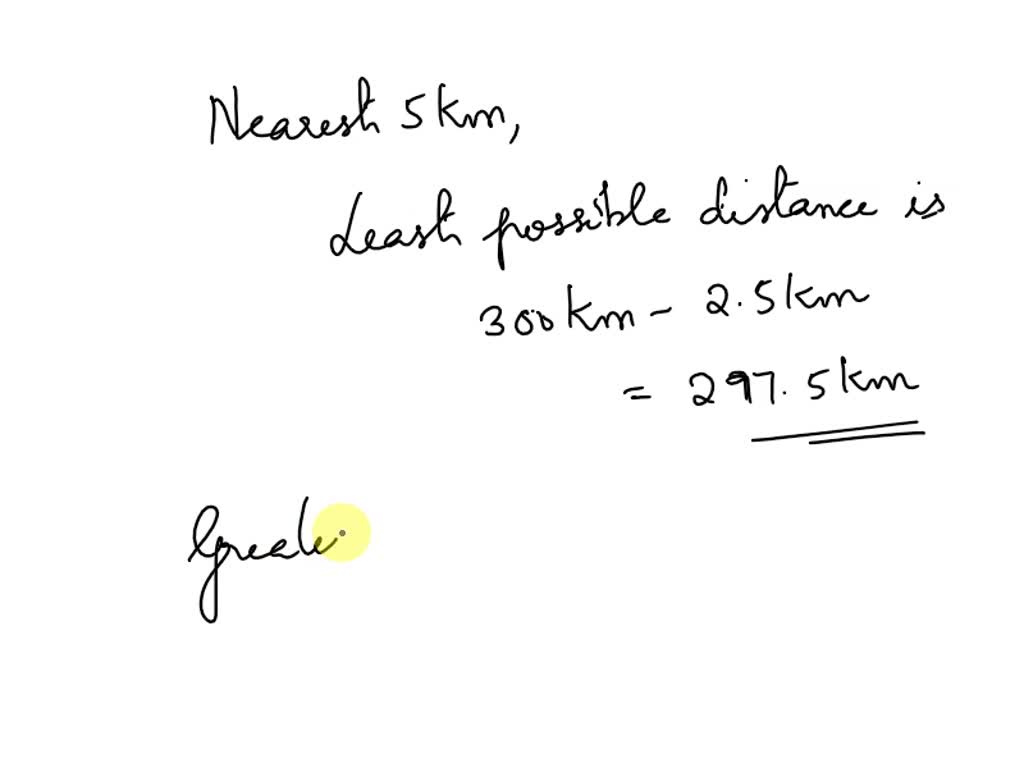 Nearest 5km,
Least possible distance is
300km - 2.5km
= 297.5km
Greate